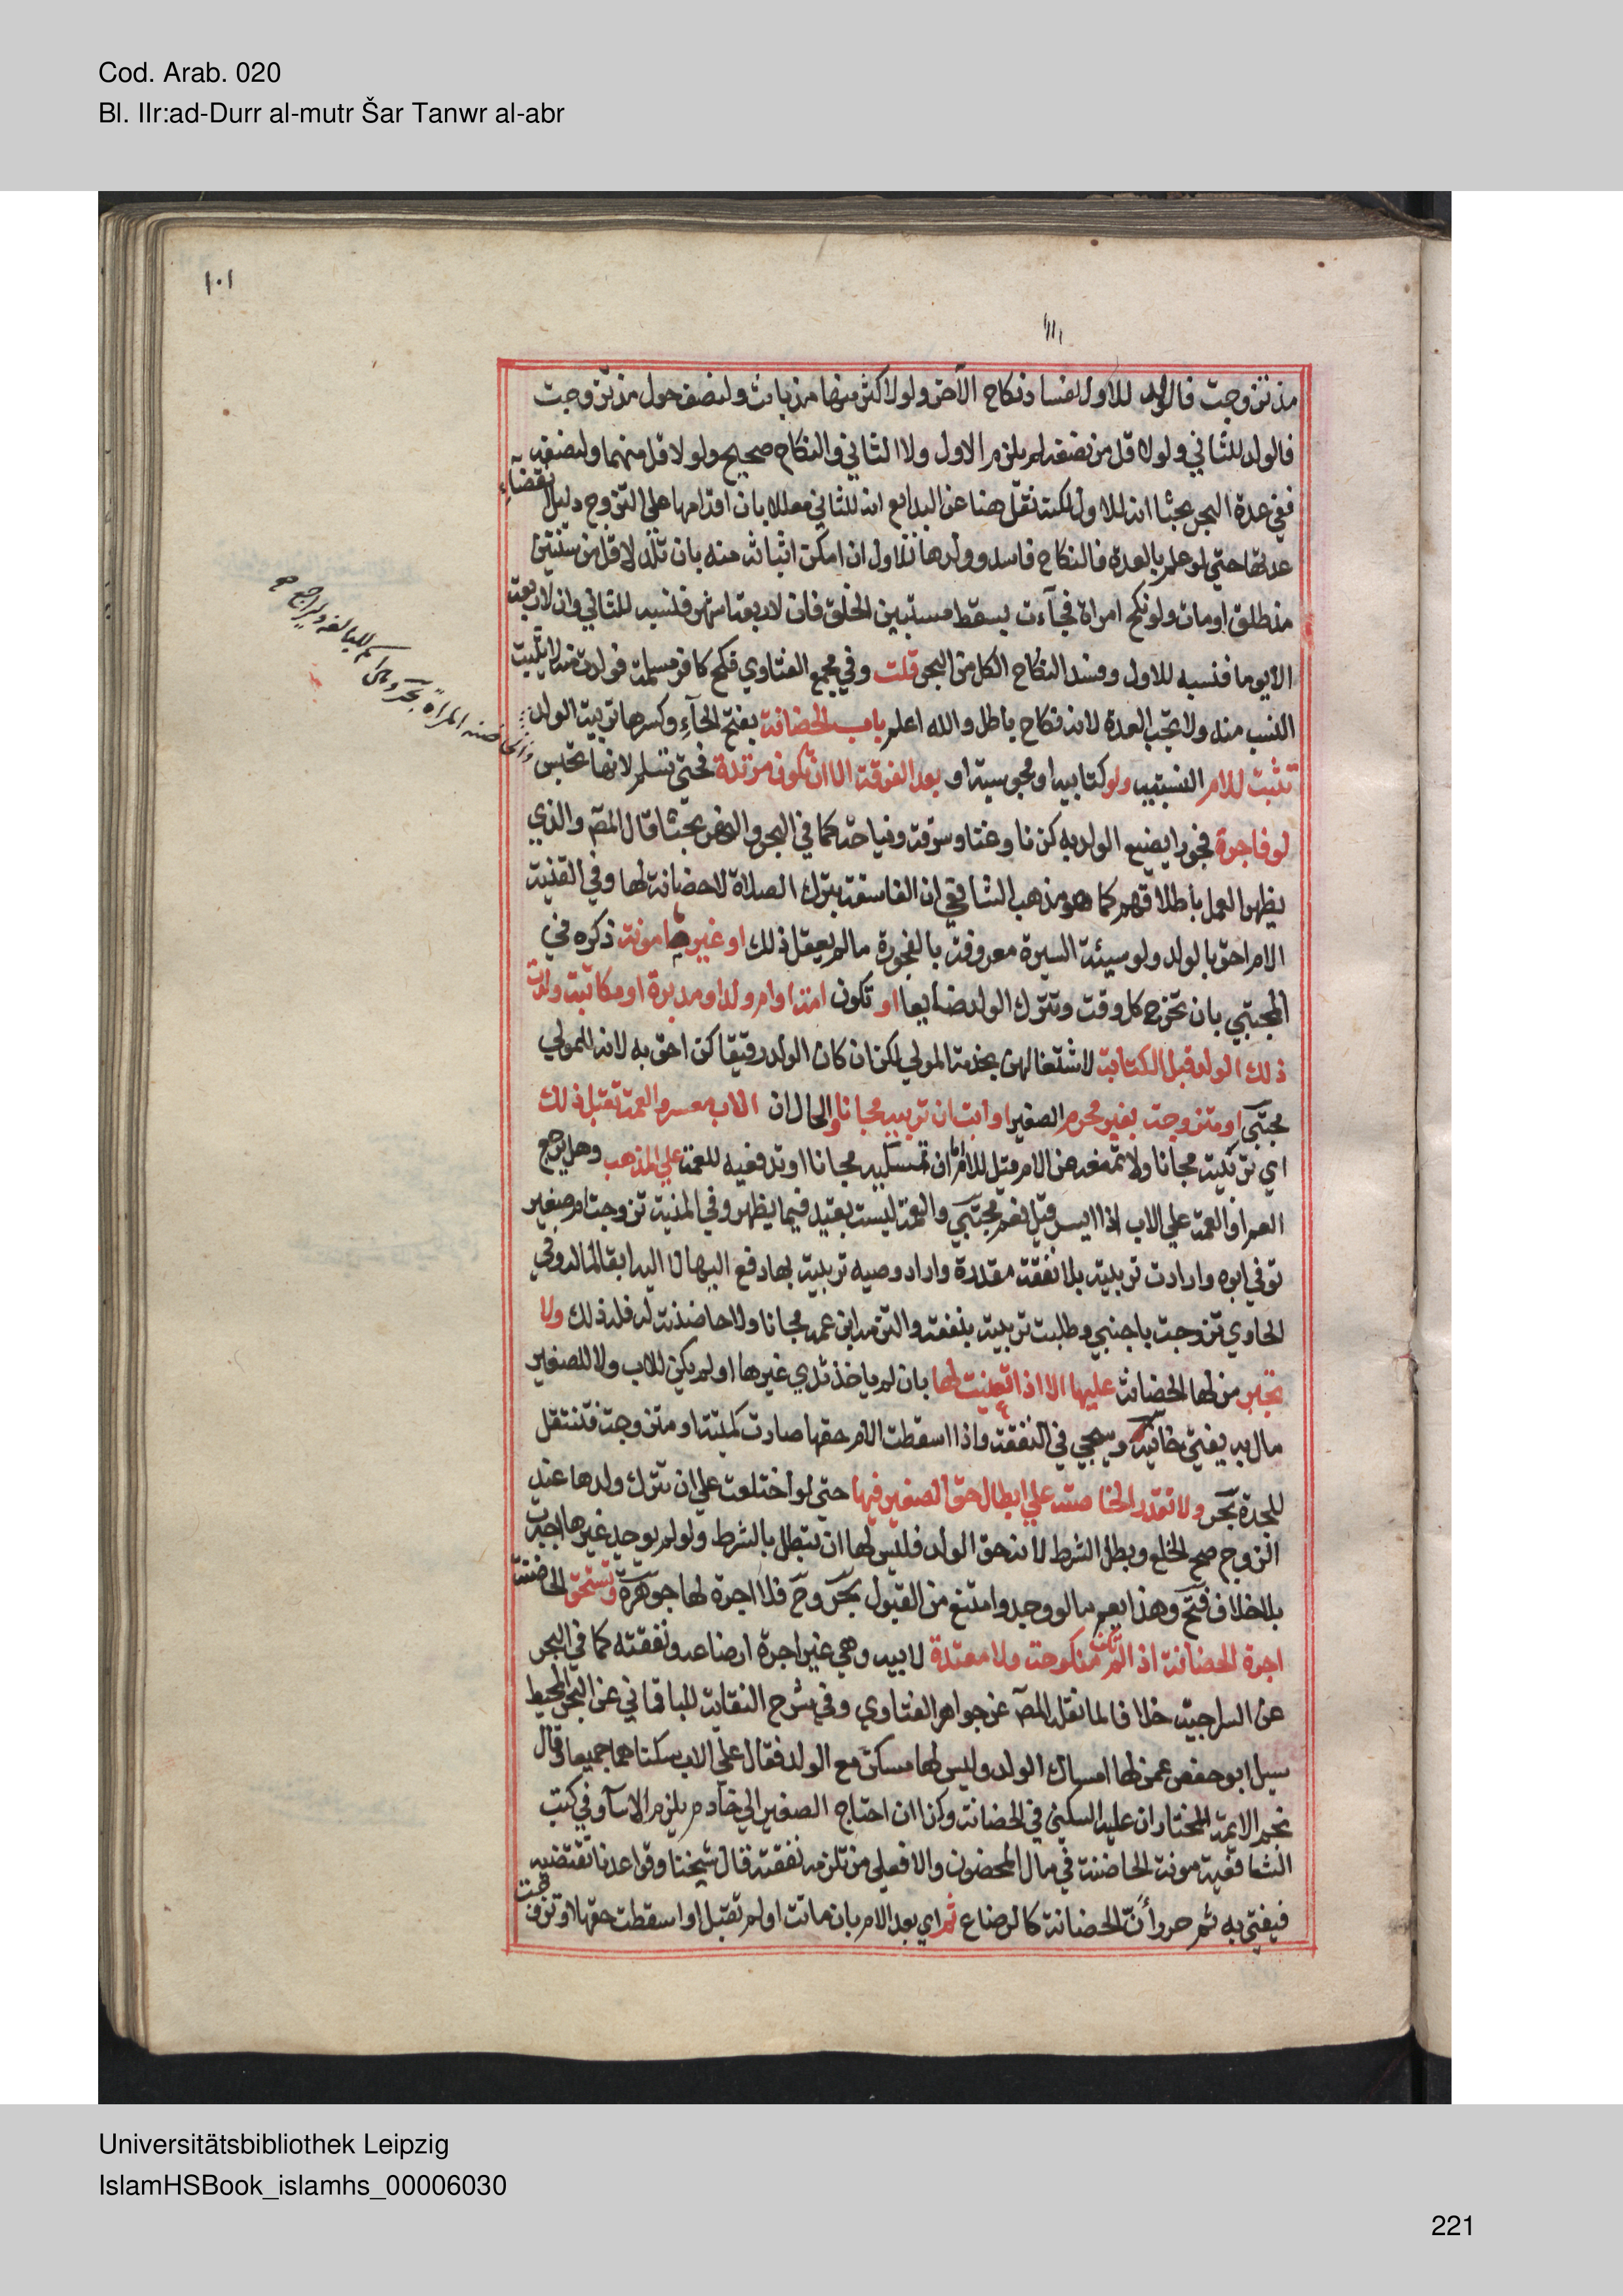 Cod. Arab. 020
Bl. IIr:ad-Durr al-mutr Šar Tanwr al-abr
١٠١
١١١
مذ تزوجت فالولد للاول لفساد نكاح الآخر ولو لاكثر منهما مذ بانت ولنصف حول مذ تزوجت
فالولد للثاني ولو لاقل من نصفه لم يلزم الاول ولا الثاني والنكاح صحيح ولو لاقل منهما ولنصفه
ففي عدة البحر بحثا انه للاول لكنه نقل هنا عن البدايع انه للثاني معللا بان اقدامها على التزوج دليل انقضاء
عدتها حتي لو علم بالعدة فالنكاح فاسد وولدها للاول ان امكن اثباته منه بان تلد لاقل من سنتين
مذ طلق او مات ولو نكح امراة فجآءت بسقط مستبين الخلق فان لاربعة اشهر فنسبه للثاني وان لاربعة
الا يوما فنسبه للاول وفسد النكاح الكل من البحر قلت وفي مجمع الفتاوي نكح كافر مسلمة فولدت منه لا يثبت
النسب منه ولا تجب العدة لانه نكاح باطل والله اعلم باب الحضانة بفتح الحآء وكسرها تربية الولد
تثبت للام النسبية ولو كتابية او مجوسية او بعد الفرقة الا ان تكون مرتدة فحتي تسلم لانها تحبس
لو فاجرة فجورا يضيع الولد به كزنا وغنا وسرقة ونياحة كما في البحر والنهر بحثا قال المصـ والذي
يظهر العمل باطلاقهم كما هو مذهب الشافعي ان الفاسقة بترك الصلاة لا حضانة لها وفي القنية
الام احق بالولد ولو سيئة السيرة معروفة بالفجور ما لم يعقل ذلك او غير مامونة ذكره في
المجتبي بان تخرج كل وقت وتترك الولد ضايعا او تكون امة او ام ولد او مدبرة او مكاتبة ولدت
ذلك الولد قبل الكتابة لاشتغالهن بخدمة المولي لكن ان كان الولد رقيقا كن احق به لانه للمولي
مجتبي او متزوجت بغير محرم الصغير او ابت ان تربيه مجانا والحال ان الاب معسر والعمة تقبل ذلك
اي تربيته مجانا ولا تمنعه عن الام قيل للام اما ان تمسكيه مجانا او تدفعيه للعمة علي المذهب وهل يرجع
العم او العمة علي الاب اذا ايسر قيل نعم مجتبي والعمة ليست بقيد فيما يظهر وفي المنية تزوجت ام صغير
توفي ابوه وارادت تربيته بلا نفقة مقدرة واراد وصيه تربيته بها دفع اليها لا اليه ابقا لماله وفي
الحاوي تزوجت باجنبي وطلبت تربيته بنفقة والتزمه ابن عمه مجانا ولا حاضنة له فله ذلك ولا
تجبر من لها الحضانة عليها الا اذا تعينت لها بان لم ياخذ ثدي غيرها او لم يكن للاب ولا للصغير
مال به يفتي خانية وسيجي في النفقة واذا اسقطت الام حقها صارت كميتة او متزوجة فتنتقل
للجدة بحر ولا تقدر الحاضنة علي ابطال حق الصغير فيها حتي لو اختلعت علي ان تترك ولدها عند
الزوج صح الخلع وبطل الشرط لانه حق الولد فليس لها ان تبطل بالشرط ولو لم يوجد غيرها اجبرت
بلا خلاف فتح وهذا يعم ما لو وجد وامتنع من القبول بحر وح فلا اجرة لها جوهرة وتستحق الحاضنة
اجرة الحضانة اذا لم تكن منكوحة ولا معتدة لابيه وهي غير اجرة ارضاعه ونفقته كما في البحر
عن السراجية خلافا لما نقله المصـ عن جواهر الفتاوي وفي شرح النقاية للباقاني عن البحر المحيط
سيل ابو حفص عمن لها امساك الولد وليس لها مسكن مع الولد فقال علي الاب سكناهما جميعا وقال
نجم الايمة المختار ان عليه السكني في الحضانة وكذا ان احتاج الصغير الي خادم يلزم الاب وفي كتب
الشافعية مونة الحاضنة في مال المحضون والا فعلي من تلزمه نفقته قال شيخنا وقواعدنا تقتضيه
فيفتي به ثم حرر أنّ الحضانة كالرضاع ثم اي بعد الام بان ماتت او لم تقبل او اسقطت حقها او تزوجت
Universitätsbibliothek Leipzig
IslamHSBook_islamhs_00006030
221